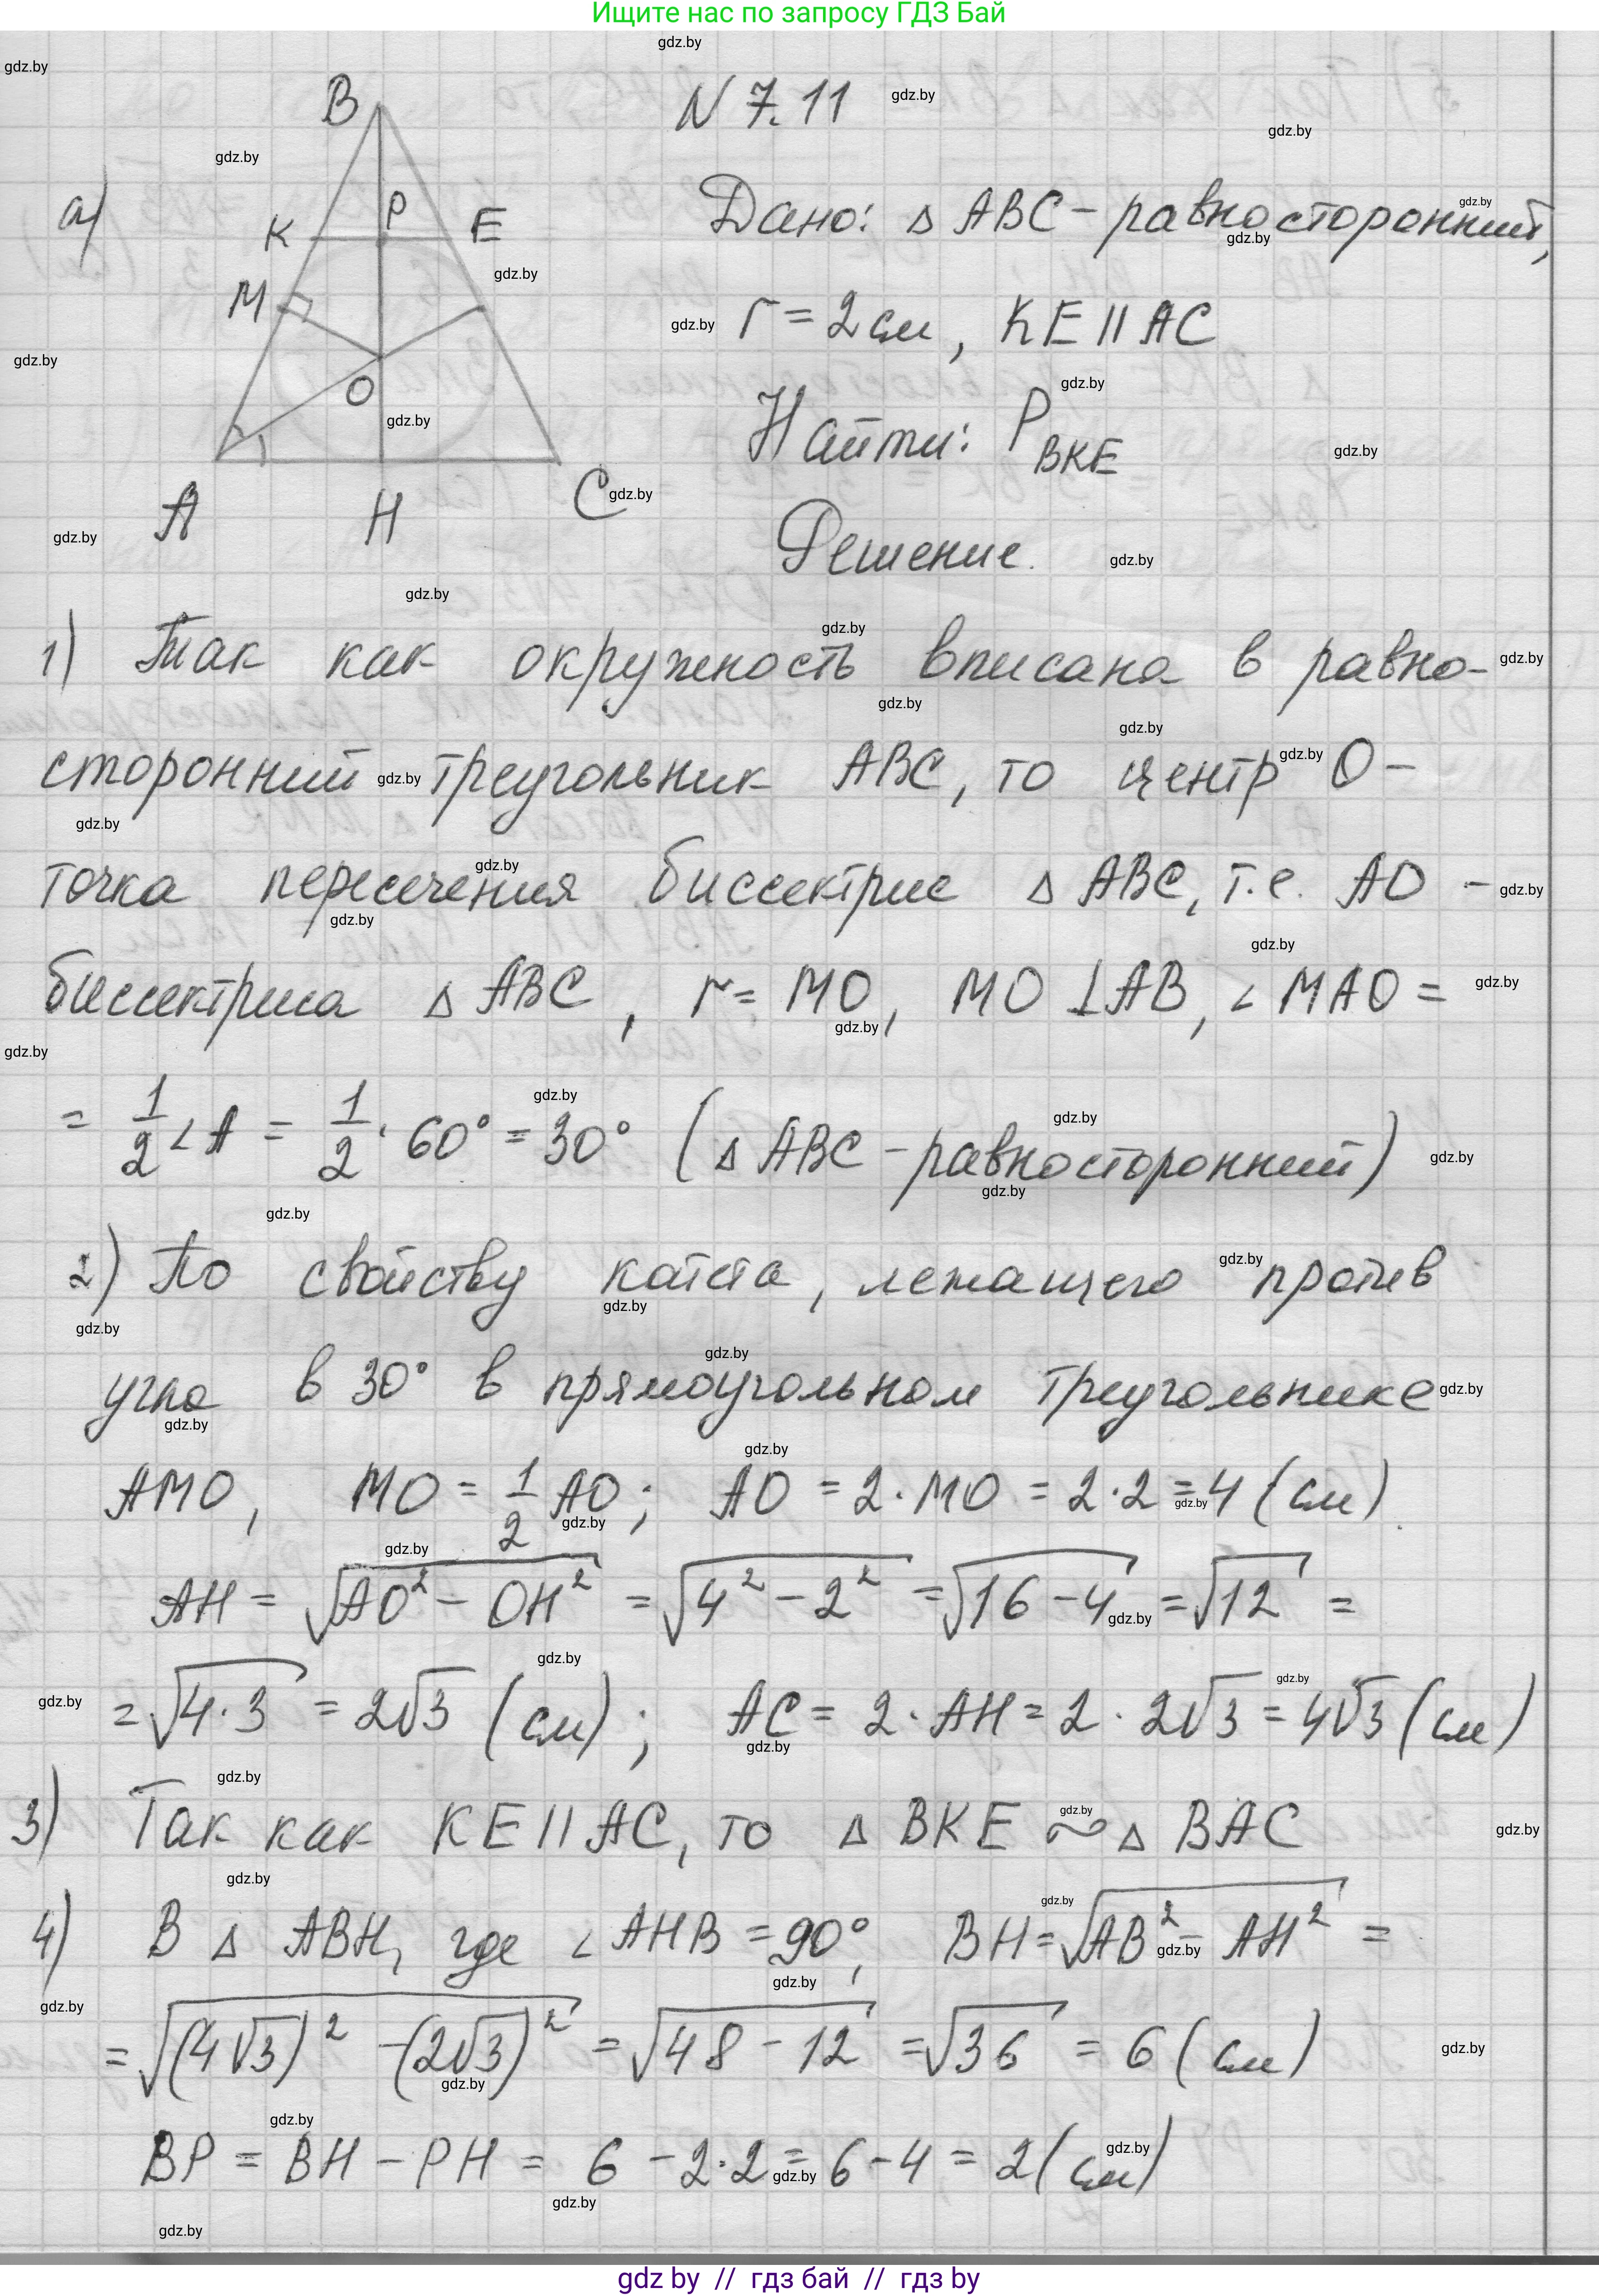 Ищите нас по запросу ГДЗ Бай
N 7.11
а)
B
K
P
E
M
O
A
H
C
Дано: △ ABC - равносторонний,
r = 2 см, KE || AC
Найти: P_BKE
Решение.
1) Так как окружность вписана в равно-
сторонний треугольник ABC, то центр O -
точка пересечения биссектрис △ ABC, т.е. AO -
биссектриса △ ABC, r = MO, MO ⊥ AB, ∠ MAO =
= 1/2 ∠ A = 1/2 · 60° = 30° (△ ABC - равносторонний)
2) По свойству катета, лежащего против
угла в 30° в прямоугольном треугольнике
AMO, MO = 1/2 AO; AO = 2 · MO = 2 · 2 = 4 (см).
AH = √(AO² - OH²) = √(4² - 2²) = √(16 - 4) = √12 =
= √(4 · 3) = 2√3 (см); AC = 2 · AH = 2 · 2√3 = 4√3 (см)
3) Так как KE || AC, то △ BKE ~ △ BAC
4) В △ ABH, где ∠ AHB = 90°, BH = √(AB² - AH²) =
= √((4√3)² - (2√3)²) = √(48 - 12) = √36 = 6 (см)
BP = BH - PH = 6 - 2 · 2 = 6 - 4 = 2 (см)
gdz by // гдз бай // гдз by